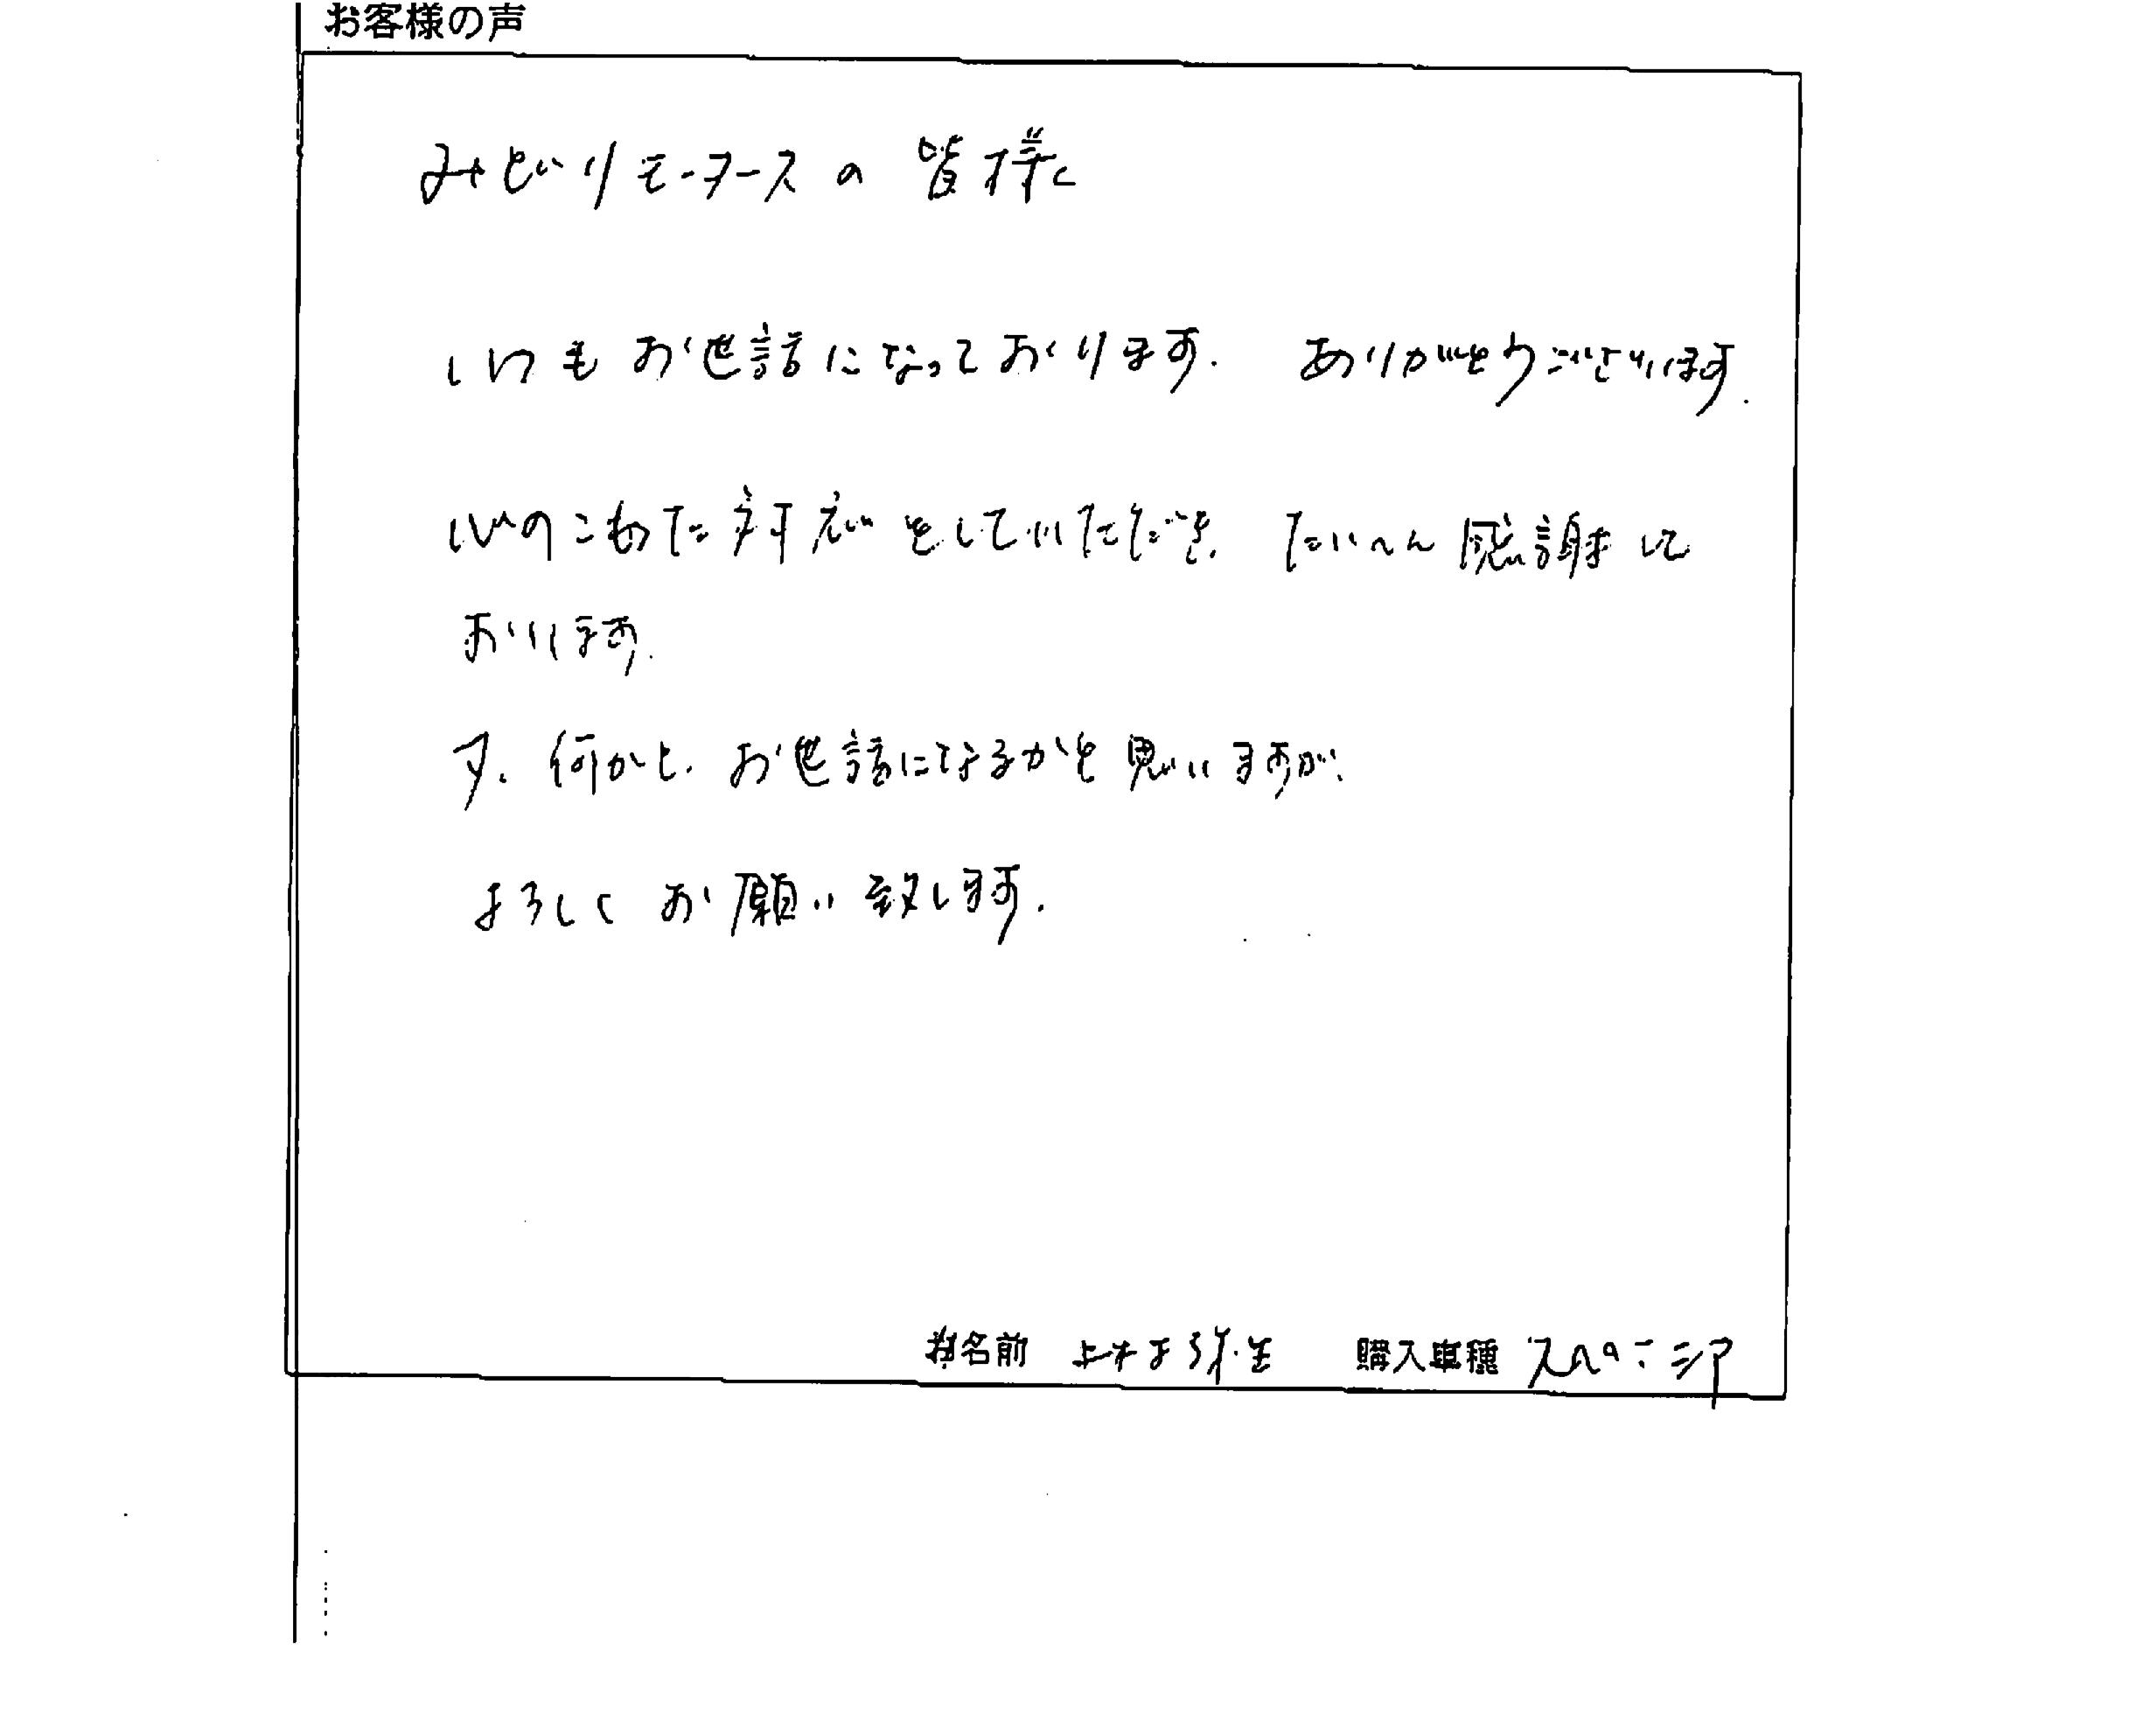 お客様の声
みどりモータースの皆様に
いつもお世話になっております. ありがとうございます.
心のこもった対応をしていただき, たいへん感謝して
おります.
又, 何かと, お世話になるかと思いますが,
よろしくお願い致します.
お名前 購入車種 スペーシア